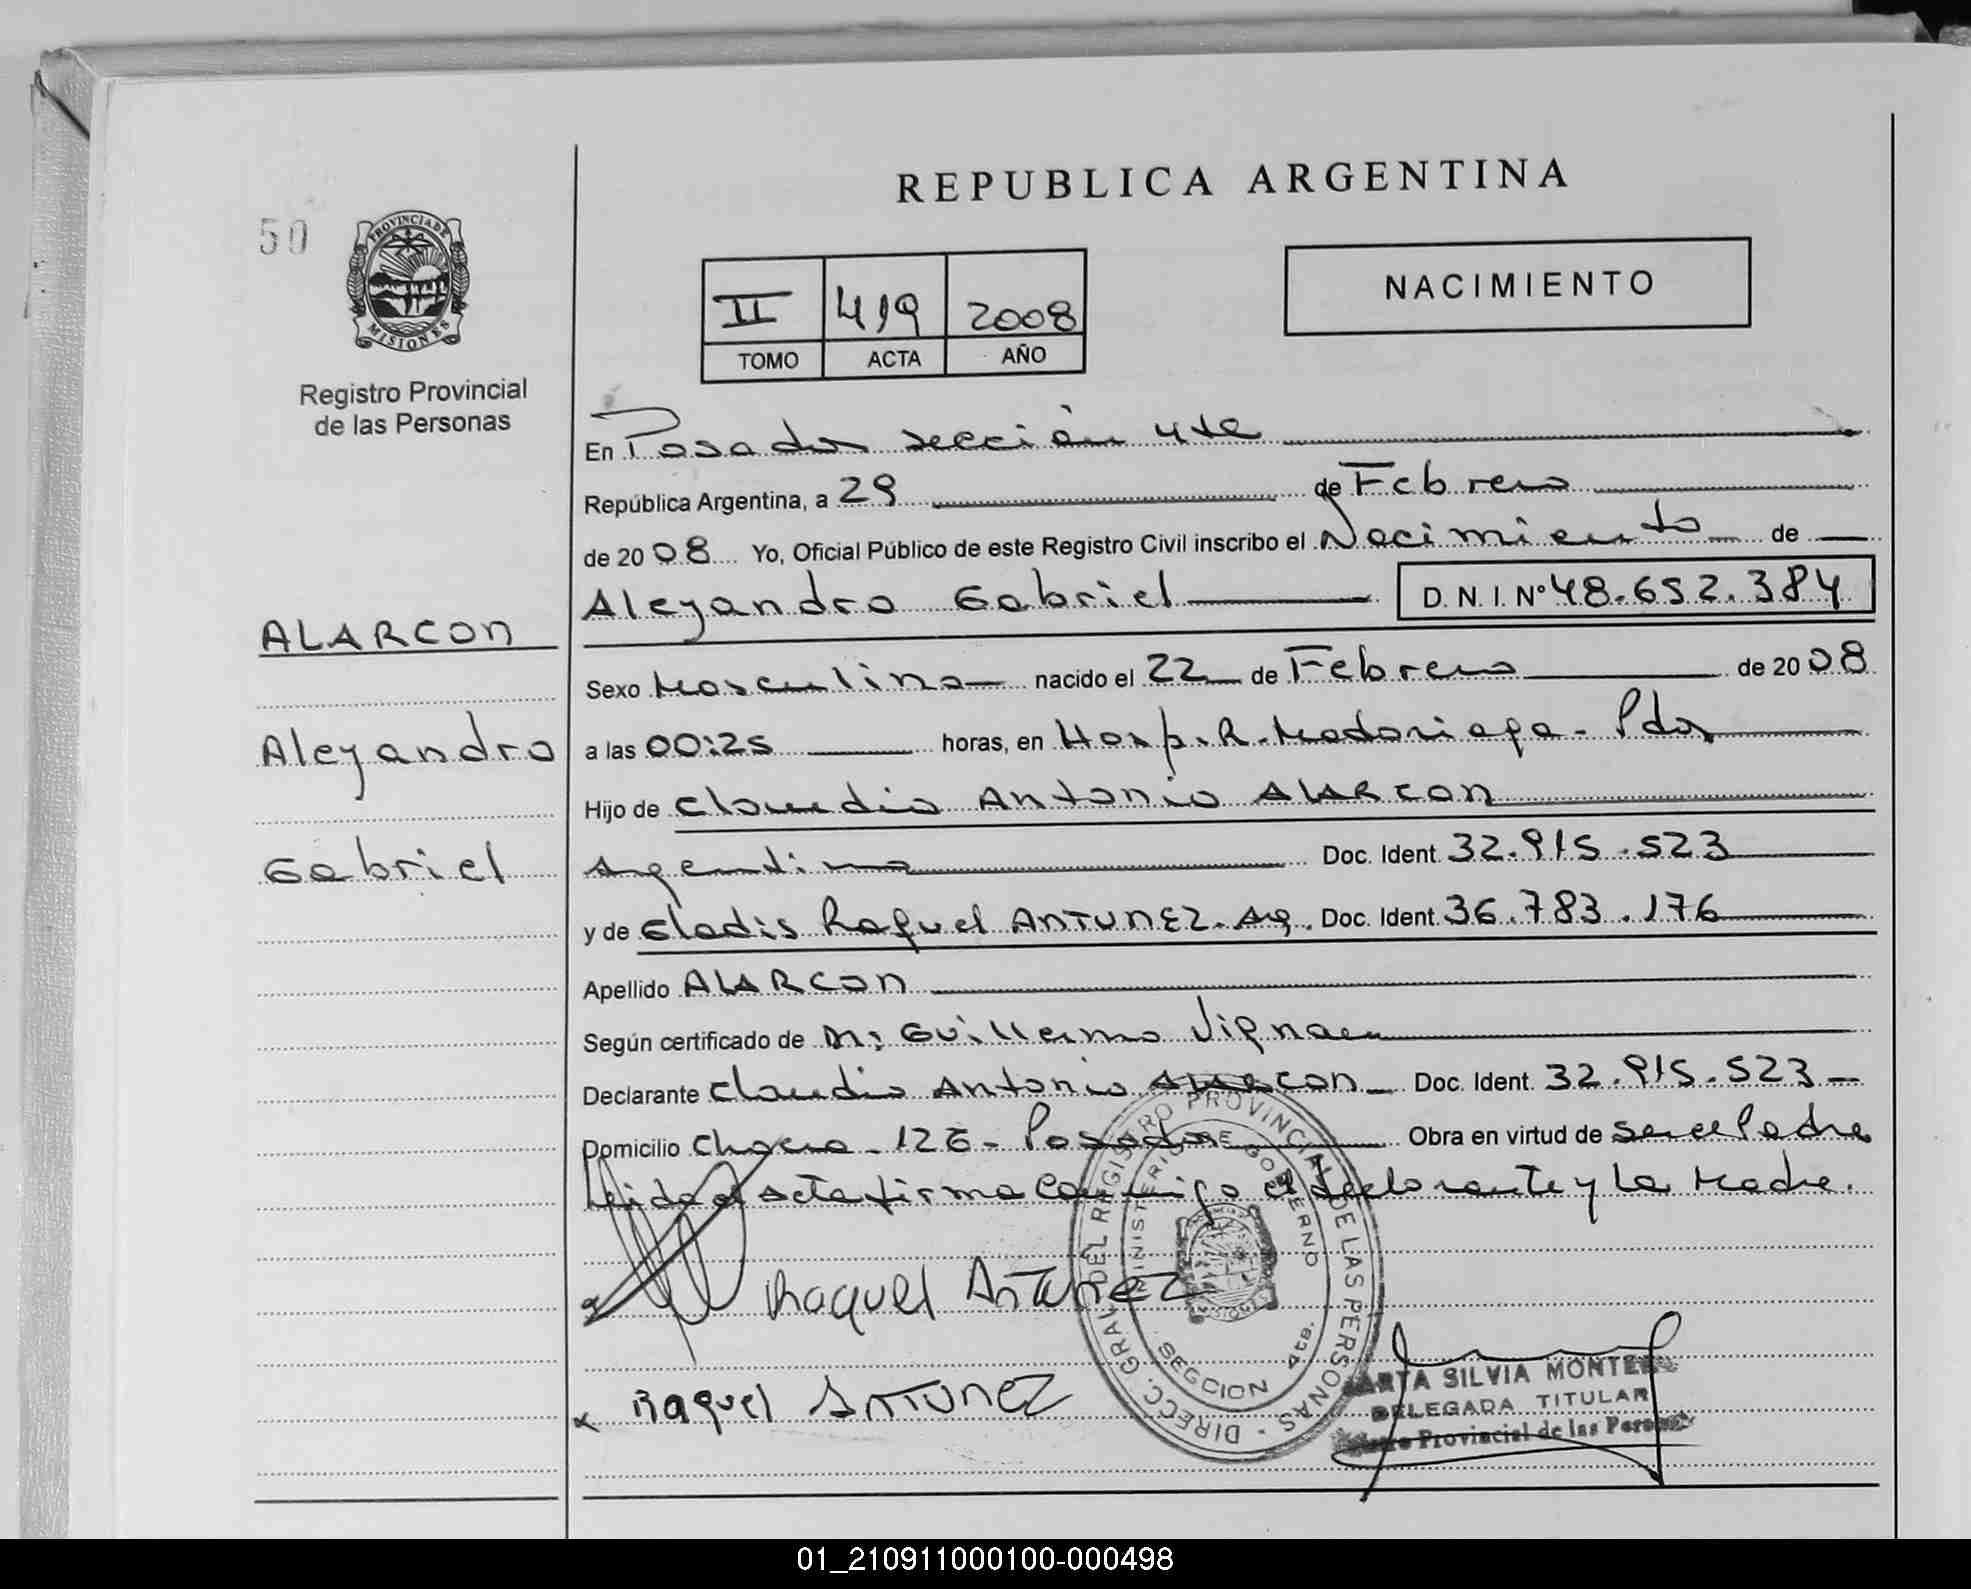 REPUBLICA ARGENTINA
50
PROVINCIA DE
MISIONES
Registro Provincial
de las Personas
II 419 2008
TOMO ACTA AÑO
NACIMIENTO
En Posadas sección 4ta
República Argentina, a 29 de Febrero
de 2008 Yo, Oficial Público de este Registro Civil inscribo el Nacimiento de
Alejandro Gabriel D.N.I. Nº 48.652.384
ALARCON
Sexo Masculino nacido el 22 de Febrero de 2008
Alejandro
a las 00:25 horas, en Hosp. R. Madariaga - Pdas
Hijo de Claudio Antonio ALARCON
Gabriel
Argentino Doc. Ident. 32.915.523
y de Gladis Raquel ANTUNEZ - Arg. Doc. Ident. 36.783.176
Apellido ALARCON
Según certificado de M: Guillermo
Declarante Claudio Antonio ALARCON Doc. Ident. 32.915.523
Domicilio Chacra - 126 - Posadas Obra en virtud de ser el Padre
Leida el Acta firma conmigo el declarante y La Madre.
Raquel Antunez
Raquel ANTUNEZ
DIRECC. GRAL DEL REGISTRO PROVINCIAL DE LAS PERSONAS
MINISTERIO DE GOBERNO
SECCION 4ta.
MARTA SILVIA
DELEGADA TITULAR
Provincial de las
01_210911000100-000498